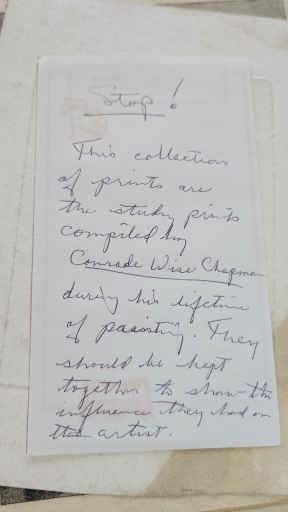 Stop!
This collection
of prints are
the study prints
compiled by
Conrade Wise Chapman
during his lifetime
of painting. They
should be kept
together to show the
influence they had on
the artist.